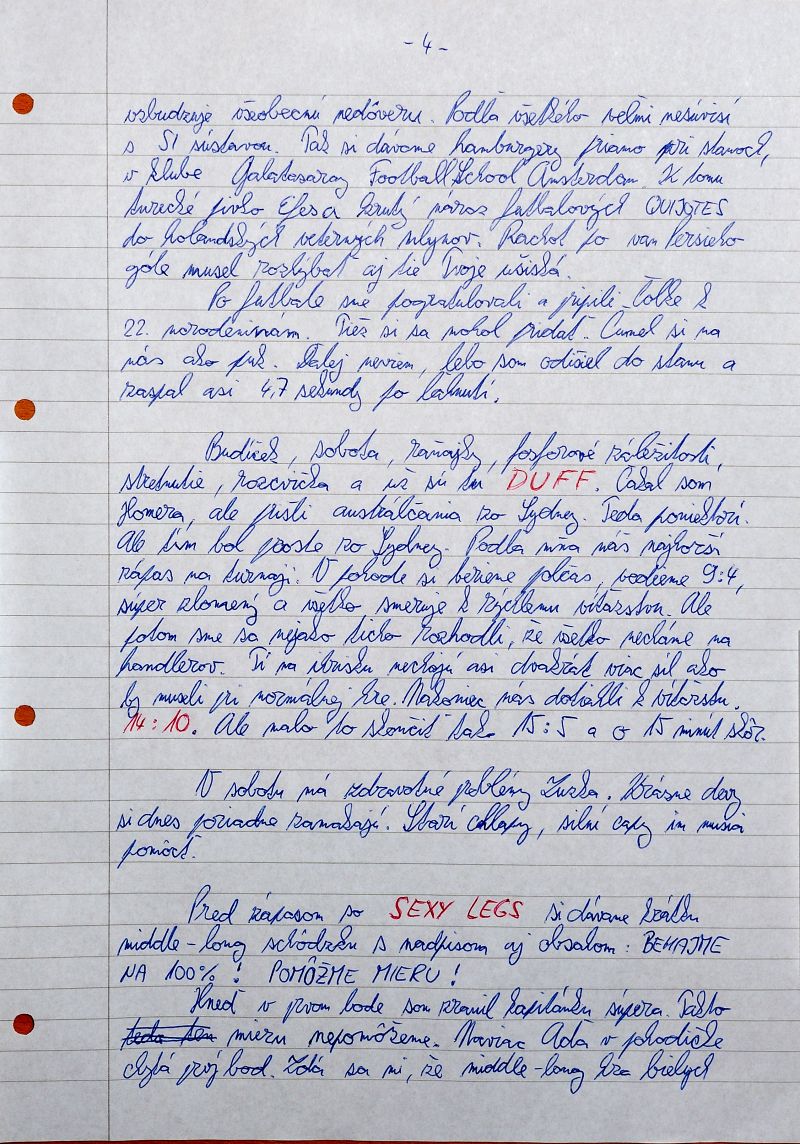 - 4 -
vzbudzuje všeobecnú nedôveru. Podľa všetkého veľmi nesúvisí
s SI sústavou. Tak si dávame hamburgery priamo pri stanoch,
v klube Galatasaray Football School Amsterdam. K tomu
turecké pivko Efes a krutý náraz futbalových QUIJOTES
do holandských veterných mlynov. Rachot po van Persieho
góle musel rozhýbať aj tie Tvoje ušiská.
Po futbale sme pogratulovali a pripili Toľke k
22. narodeninám. Tiež si sa mohol pridať. Čumel si na
nás ako puk. Ďalej neviem, lebo som odišiel do stanu a
zaspal asi 4,7 sekundy po ľahnutí.
Budíček, sobota, raňajky, fosforové záležitosti,
stretnutie, rozcvička a už sú tu DUFF. Čakal som
Homera, ale prišli austrálčania zo Sydney. Teda poniektorí.
Ale tím bol proste zo Sydney. Podľa mňa náš najhorší
zápas na turnaji. V pohode si berieme polčas, vedieme 9:4,
súper zlomený a všetko smeruje k rýchlemu víťazstvu. Ale
potom sme sa nejako ticho rozhodli, že všetko necháme na
handlerov. Tí na ihrisku nechajú asi dvakrát viac síl ako
by museli pri normálnej hre. Nakoniec nás dotiahli k víťazstvu.
14:10. Ale malo to skončiť tak 15:5 a o 15 minút skôr.
V sobotu má zdravotné problémy Zuzka. Krásne devy
si dnes poriadne zamakajú. Starí chlapy, silní capy im musia
pomôcť.
Pred zápasom so SEXY LEGS si dávame krátku
middle-long schôdzku s nadpisom aj obsahom: BEHAJME
NA 100% ! POMÔŽME MIERU !
Hneď v prvom bode som zranil kapitánku súpera. Takto
teda ten mieru nepomôžeme. Naviac Aďa v pohodičke
chytá prvý bod. Zdá sa mi, že middle-long hra bielych